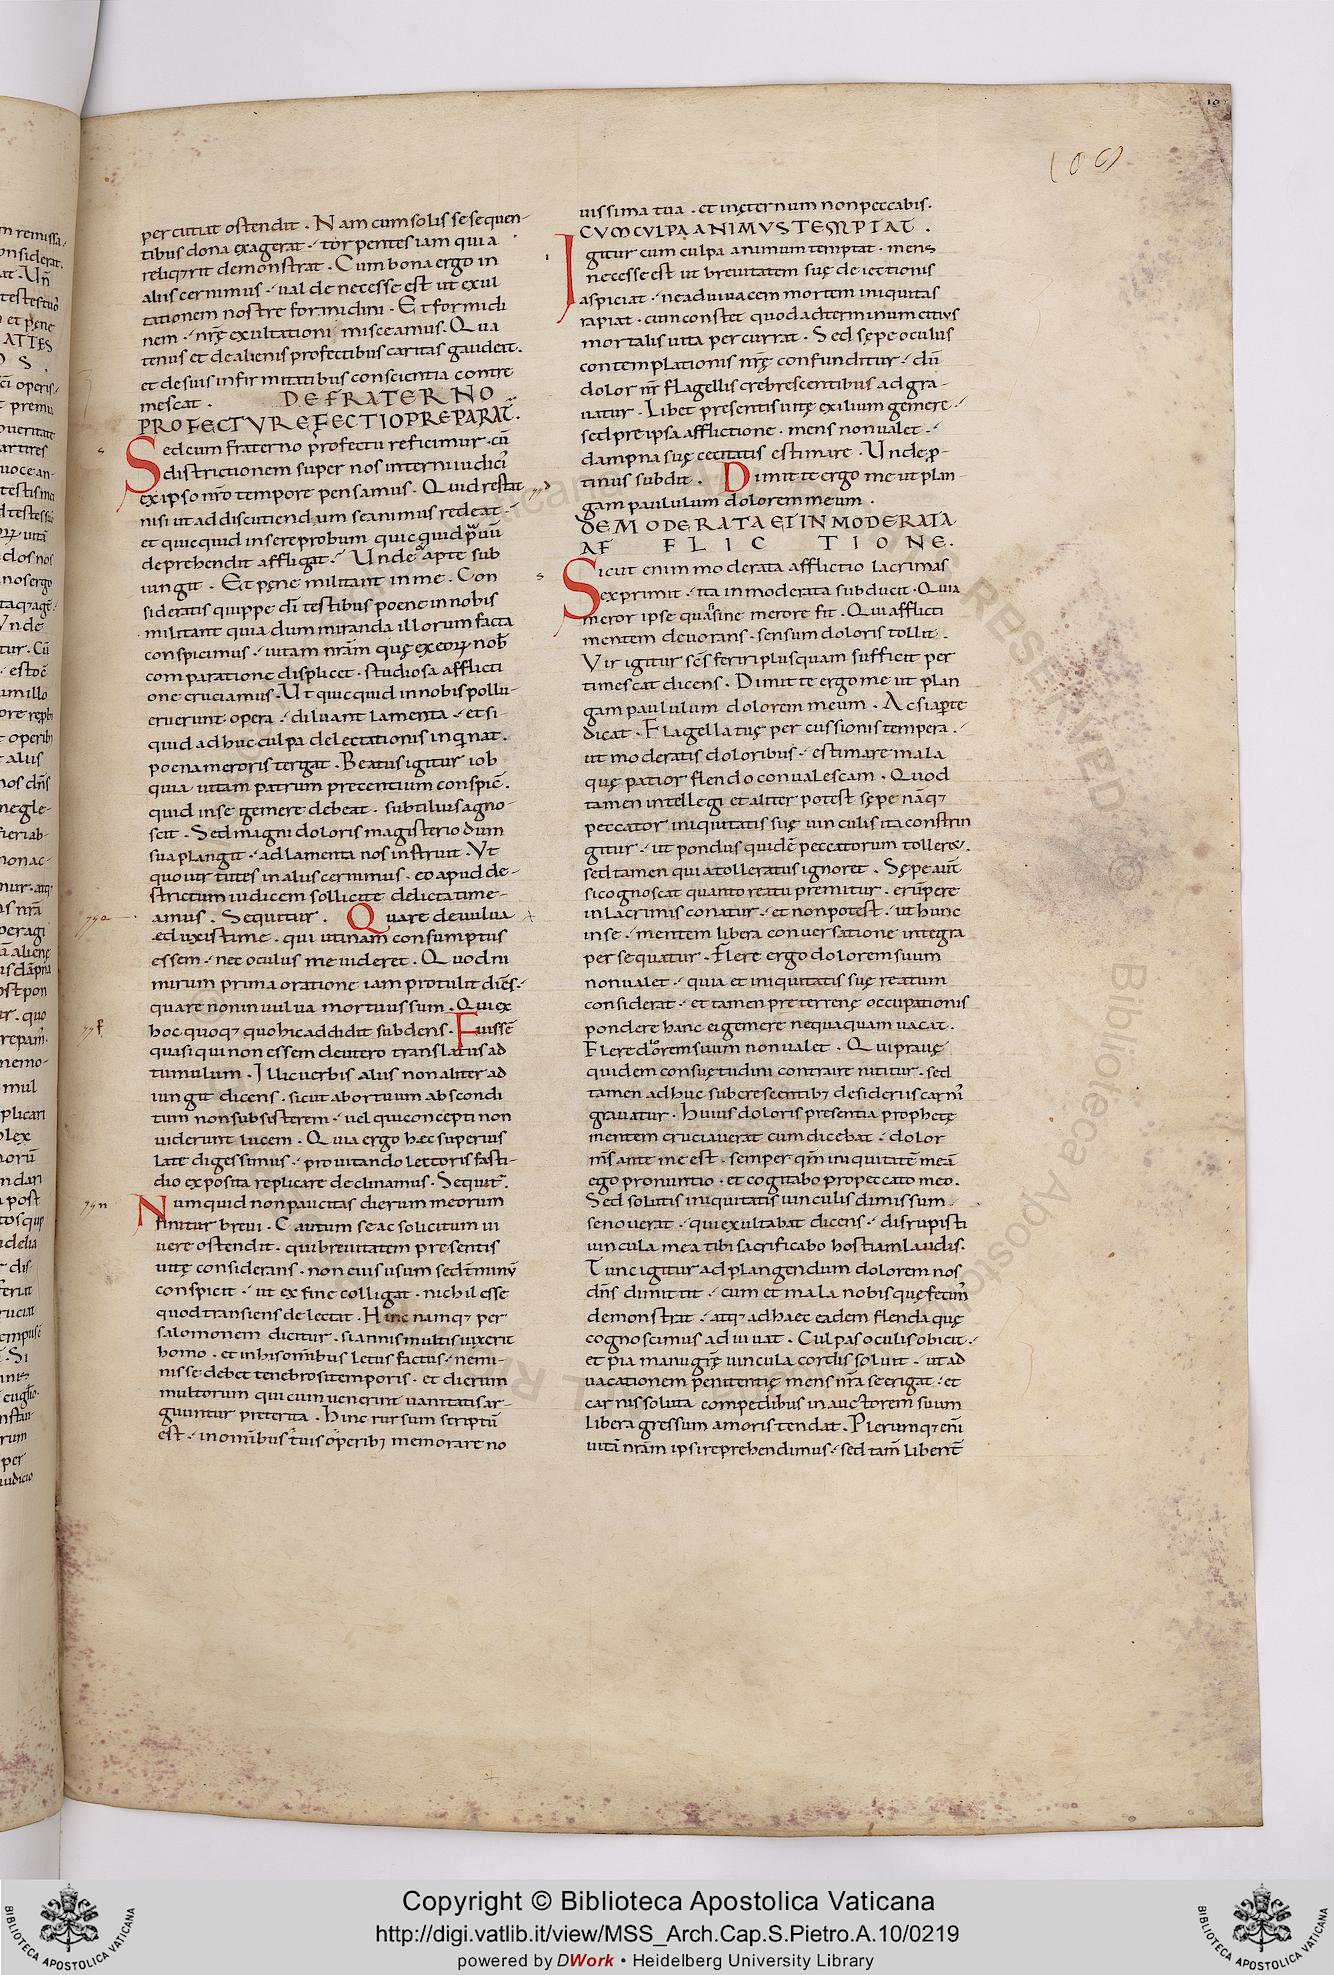 percutiat ostendit . Nam cum solis se sequen-
tibus dona exagerat . torpentes iam qui a
reliq;rit demonstrat . Cum bona ergo in
aliis cernimus . ualde necesse est ut exul
tationem nostre formidini . Et formidi
nem . nr̄ę exultationi misceamus . Qua
tenus et de alienis profectibus caritas gaudeat .
et de suis infirmitatibus conscientia contre
mescat . DE FRATERNO
PROFECTV REFECTIO PREPARAT̄ .
Sed cum fraterno profectu reficimur . cū
districtionem super nos interni iudicis
ex ipso nr̄o tempore pensamus . Quid restat
nisi ut ad discutiendum se animus redeat .
et quicquid in se reprobum quicquid prauū
deprehendit affligat . Unde apte sub
iungit . Et pęne militant in me . Con
sideratis quippe dī testibus poene in nobis
militant quia dum miranda illorum facta
conspicimus . uitam nrām quę ex eorum nob̄
comparatione displicet . studiosa afflicti
one cruciamus . Ut quicquid in nobis pollu-
erunt opera . diluant lamenta . et si
quid adhuc culpa delectationis inquinat .
poena meroris tergat . Beatus igitur iob
quia uitam patrum precentium conspic̄ .
quid in se gemere debeat . subtilius agno-
scit . Sed magni doloris magisterio dum
sua plangit . ad lamenta nos instruit . Vt
quo uirtutes in aliis cernimus . eo apud de-
strictum iudicem sollicite delicta time-
amus . Sequitur . Quare de uulua
eduxisti me . qui utinam consumptus
essem . nec oculus me uideret . Quod ni
mirum prima oratione iam protulit diēs .
quare non in uulua mortuus sum . Qui ex
hoc quoq; quo hic addidit subdens . Fuissē
quasi qui non essem de utero translatus ad
tumulum . Illic uerbis aliis non aliter ad
iungit dicens . sicut abortuum abscondi
tum non subsisterem . uel qui concepti non
uiderunt lucem . Quia ergo hęc superius
late digessimus . pro uitando lectoris fasti-
dio exposita replicare declinamus . Sequit̄ .
Numquid non paucitas dierum meorum
finitur breui . Cautum se ac solicitum ui
uere ostendit . qui breuitatem presentis
uitę considerans . non eius usum sed t̄minū
conspicit . ut ex fine colligat . nichil esse
quod transiens delectat . Hinc namq; per
salomonem dicitur . si annis multis uixerit
homo . et in his om̄ibus letus factus . memi-
nisse debet tenebrosi temporis . et dierum
multorum qui cum uenerint uanitatis ar-
guuntur preterita . Hinc rursum scriptū
est . in om̄ibus tuis operib; memorare no
uissima tua . et in ęternum non peccabis .
CVM CVLPA ANIMVS TEMPTAT .
Igitur cum culpa animum temptat . mens
necesse est ut breuitatem suę deiectionis
aspiciat . ne ad uiuacem mortem iniquitas
rapiat . cum constet quod ad terminum citius
mortalis uita percurrat . Sed sępe oculus
contemplationis nr̄ę confunditur . dū
dolor nr̄ flagellis crebrescentibus ad gra-
uatur . Libet presentis uitę exilium gemere .
sed pre ipsa afflictione . mens non ualet .
dampna suę cecitatis estimare . Unde p̱-
tinus subdit . Dimitte ergo me ut plan-
gam paululum dolorem meum .
DE MODERATA ET INMODERATA
AFFLICTIONE .
Sicut enim moderata afflictio lacrimas
exprimit . ita inmoderata subducit . Quia
meror ipse quasi sine merore fit . Qui afflicti
mentem deuorans . sensum doloris tollit .
Vir igitur sc̄s feriri plus quam sufficit per
timescat dicens . Dimitte ergo me ut plan
gam paululum dolorem meum . Ac si aperte
dicat . Flagella tuę percussionis tempera .
ut moderatis doloribus . estimare mala
quę patior flendo conualescam . Quod
tamen intellegi et aliter potest sępe nāq;
peccator iniquitatis suę uinculis ita constrin
gitur . ut pondus quidē peccatorum tolleret .
sed tamen quia tolleratus ignoret . Sępe aut̄
si cognoscat quanto reatu premitur . erūpere
in lacrimis conatur . et non potest . ut hunc
in se . mentem libera conuersatione integra
persequatur . Flere ergo dolorem suum
non ualet . quia et iniquitatis suę reatum
considerat . et tamen pre terrenę occupationis
pondere hanc ei gemere nequaquam uacat .
Flere dolorem suum non ualet . Qui prauę
quidem consuętudini contraire nititur . sed
tamen adhuc subcrescentib; desideriis carnis
grauatur . Huius doloris presentia prophetę
mentem cruciauerat cum dicebat . dolor
m̄s ante me est . semper qm̄ iniquitatē meā
ego pronuntio . et cogitabo pro peccato meo .
Sed solutis iniquitatis uinculis dimissum
se nouerat . qui exultabat dicens . disrupisti
uincula mea tibi sacrificabo hostiam laudis .
Tunc igitur ad plangendum dolorem nos
dn̄s dimittit . cum et mala nobis quę fecim̄
demonstrat . atq; ad haec eadem flenda quę
cognoscimus adiuuat . Culpas oculis obicit .
et pia manu gr̄ę uincula cordis soluit . ut ad
uacationem penitentię mens nr̄a se erigat . et
carnis soluta compedibus in auctorem suum
libera gressum amoris tendat . Plerumq; enī
uitā nrām ipsi reprehendimus . sed tam̄ libent̄
Copyright © Biblioteca Apostolica Vaticana
http://digi.vatlib.it/view/MSS_Arch.Cap.S.Pietro.A.10/0219
powered by DWork • Heidelberg University Library